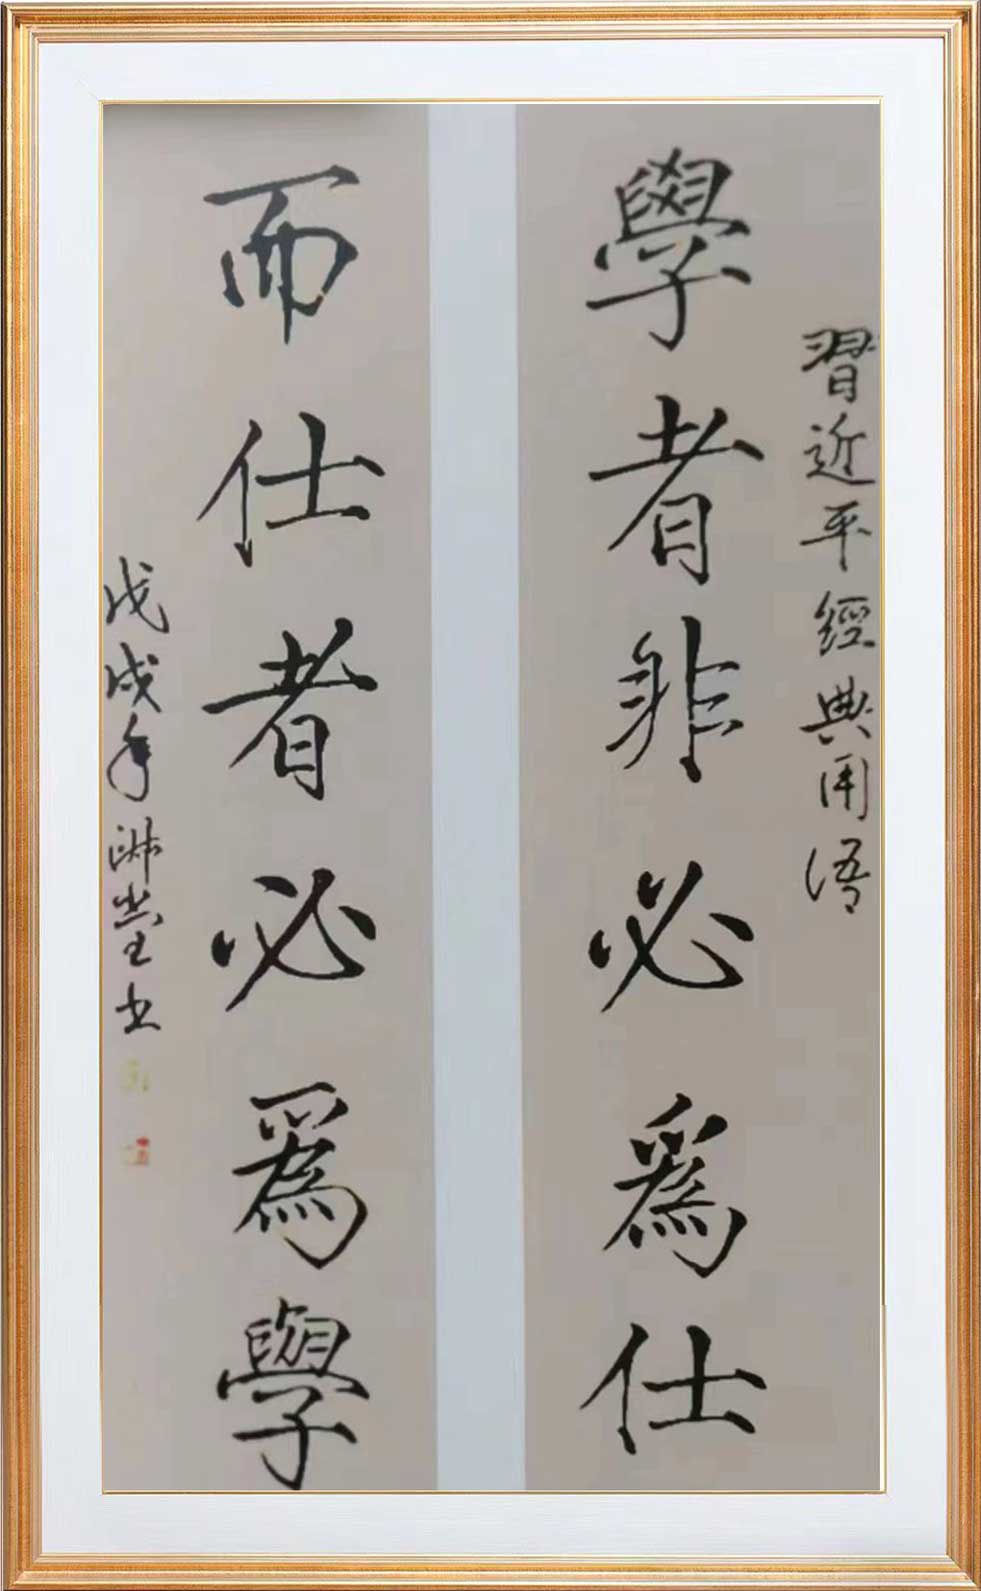 習近平經典用语
學者非必爲仕
而仕者必爲學
戊戌年 書